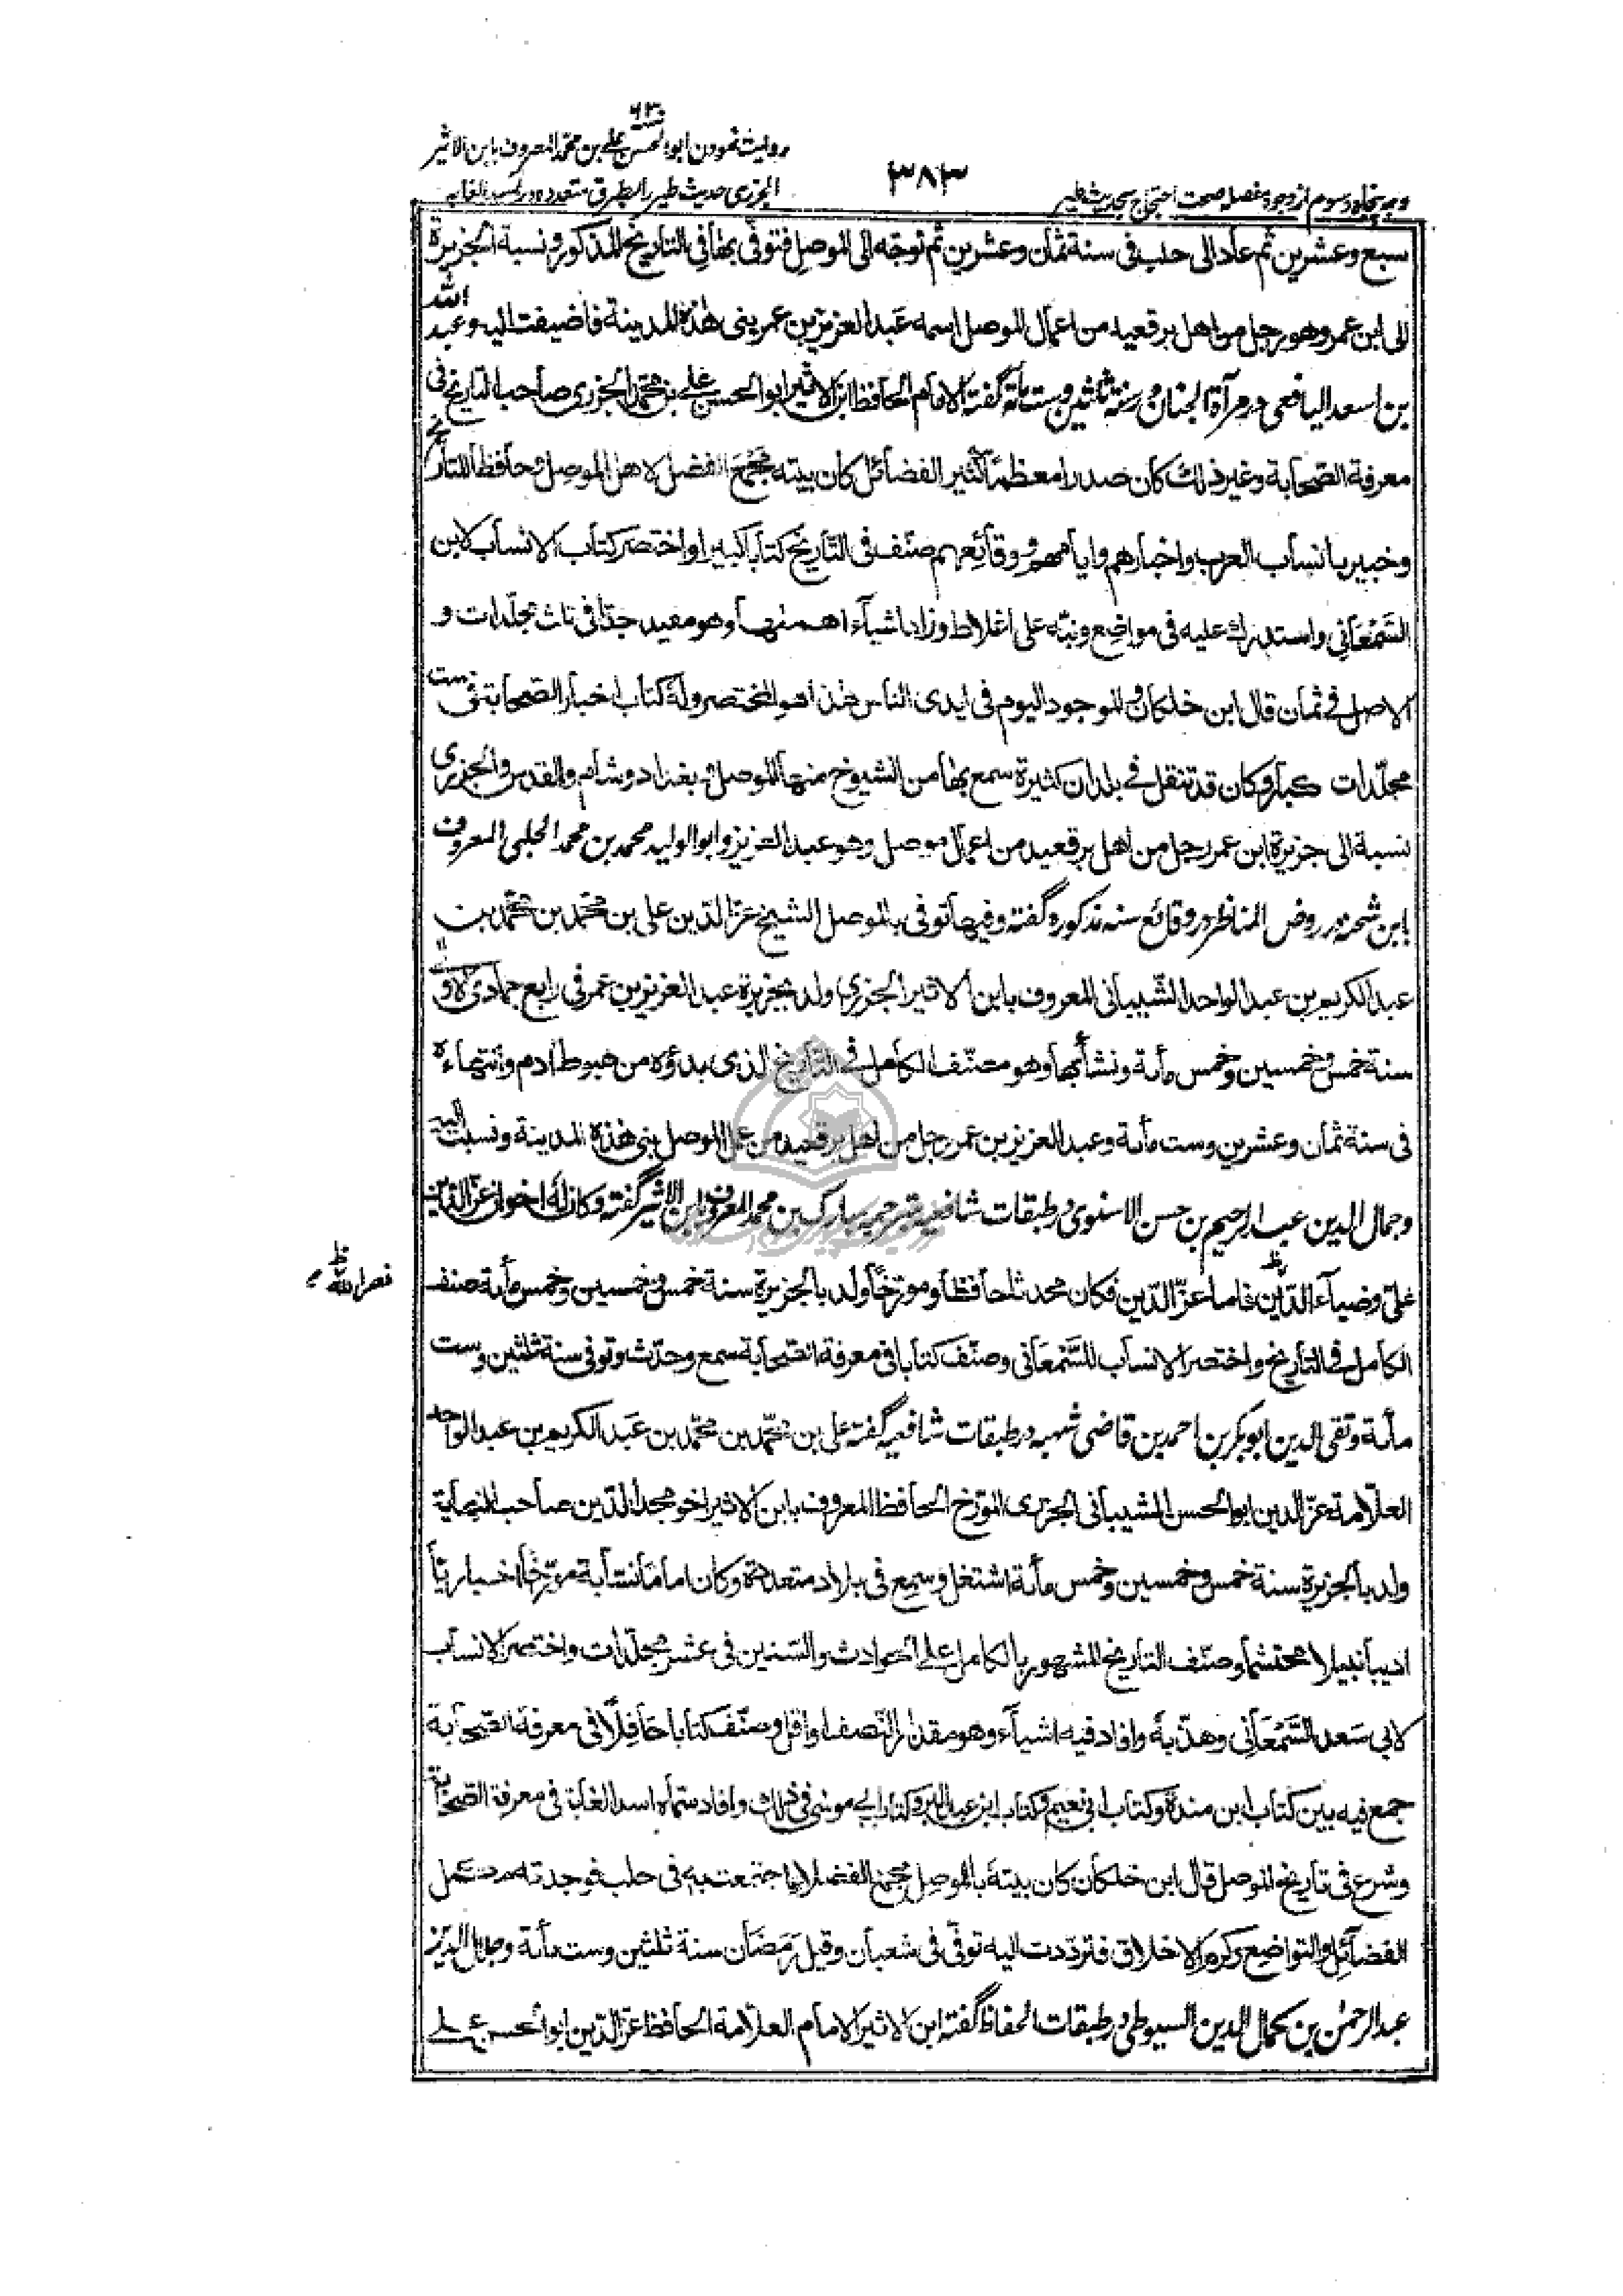 وجه پنجاه و سوم از وجوه مفصله صحت احتجاج بحدیث طیر
۳۸۳
۶۳۰
روایت نمودن ابو الحسن علی بن محمد المعروف بابن الاثیر
الجزری حدیث طیر را بطرق متعدده در اسد الغابه
سبع وعشرین ثم عاد الی حلب فی سنة ثمان وعشرین ثم توجه الی الموصل فتوفی بها فی التاریخ المذکور ونسبة الجزیرة
الی ابن عمر وهو رجل من اهل برقعید من اعمال الموصل اسمه عبد العزیز بن عمر بنی هذه المدینة فاضیفت الیه وعبد الله
بن اسعد الیافعی در مرآة الجنان در سنة ثلثین وست مأة گفته الامام الحافظ ابن الاثیر ابو الحسن علی بن محمد الجزری صاحب التاریخ فی
معرفة الصحابة وغیر ذلك کان صدرا معظما کثیر الفضائل کان بیته مجمع الفضل لاهل الموصل حافظا للتاریخ
وخبیر بانساب العرب واخبارهم وایامهم ووقائعهم صنف فی التاریخ کتابا کبیرا واختصر کتاب الانساب لابن
السمعانی واستدرك علیه فی مواضع ونبه علی اغلاط وزاد اشیاء اهمها وهو مفید جدا فی ثلث مجلدات و
الاصل فی ثمان قال ابن خلکان والموجود الیوم فی ایدی الناس هذا هو المختصر وله کتاب اخبار الصحابة فی ست
مجلدات کبار وکان قد تنقل فی بلدان کثیرة سمع بها من الشیوخ منها الموصل وبغداد وشام والقدس والجزری
نسبة الی جزیرة ابن عمر رجل من اهل برقعید من اعمال موصل وهو عبد العزیز وابو الولید محمد بن محمد الحلبی المعروف
بابن شحنه در روض المناظر در وقائع سنه مذکوره گفته وفیها توفی بالموصل الشیخ عز الدین علی بن محمد بن محمد بن
عبد الکریم بن عبد الواحد الشیبانی المعروف بابن الاثیر الجزری ولد بجزیرة عبد العزیز بن عمر فی رابع جمادی الاولی
سنة خمس وخمسین وخمس مأة ونشأ بها وهو مصنف الکامل فی التاریخ الذی بدؤه من هبوط آدم وانتهاءه
فی سنة ثمان وعشرین وست مأة وعبد العزیز بن عمر رجل من اهل برقعید من عمل الموصل بنی هذه المدینة ونسبت الیه
وجمال الدین عبد الرحیم بن حسن الاسنوی در طبقات شافعیه بترجمه مبارک بن محمد المعروف بابن الاثیر گفته وکان له اخوان عز الدین
علی وضیاء الدین فاما عز الدین فکان محدثا حافظا ومورخا ولد بالجزیرة سنة خمس وخمسین وخمس مأة صنف
نصر الله ظ
الکامل فی التاریخ واختصر الانساب للسمعانی وصنف کتابا فی معرفة الصحابة سمع وحدث وتوفی سنة ثلثین وست
مأة وتقی الدین ابو بکر بن احمد بن قاضی شهبه در طبقات شافعیه گفته علی بن محمد بن محمد بن عبد الکریم بن عبد الواحد
العلامة عز الدین ابو الحسن الشیبانی الجزری المورخ الحافظ المعروف بابن الاثیر اخو مجد الدین صاحب النهایة
ولد بالجزیرة سنة خمس وخمسین وخمس مأة اشتغل وسمع فی بلاد متعددة وکان اماما نسابة مورخا اخباریا
ادیبا نبیلا محتشما وصنف التاریخ المشهور بالکامل علی الحوادث والسنین فی عشر مجلدات واختصر الانساب
لابی سعد السمعانی وهذبه وافاد فیه اشیاء وهو مقدار النصف او اقل وصنف کتابا حافلا فی معرفة الصحابة
جمع فیه بین کتاب ابن مندة وکتاب ابی نعیم وکتاب ابن عبد البر وکتاب ابی موسی فی ذلك وافاد سماه اسد الغابة فی معرفة الصحابة
وشرع فی تاریخ الموصل قال ابن خلکان کان بیته بالموصل مجمع الفضلاء اجتمعت به فی حلب فوجدته مکمل
الفضائل والتواضع وکرم الاخلاق فترددت الیه توفی فی شعبان وقیل رمضان سنة ثلثین وست مأة وجلال الدین
عبد الرحمن بن کمال الدین السیوطی در طبقات الحفاظ گفته ابن الاثیر الامام العلامة الحافظ عز الدین ابو الحسن علی